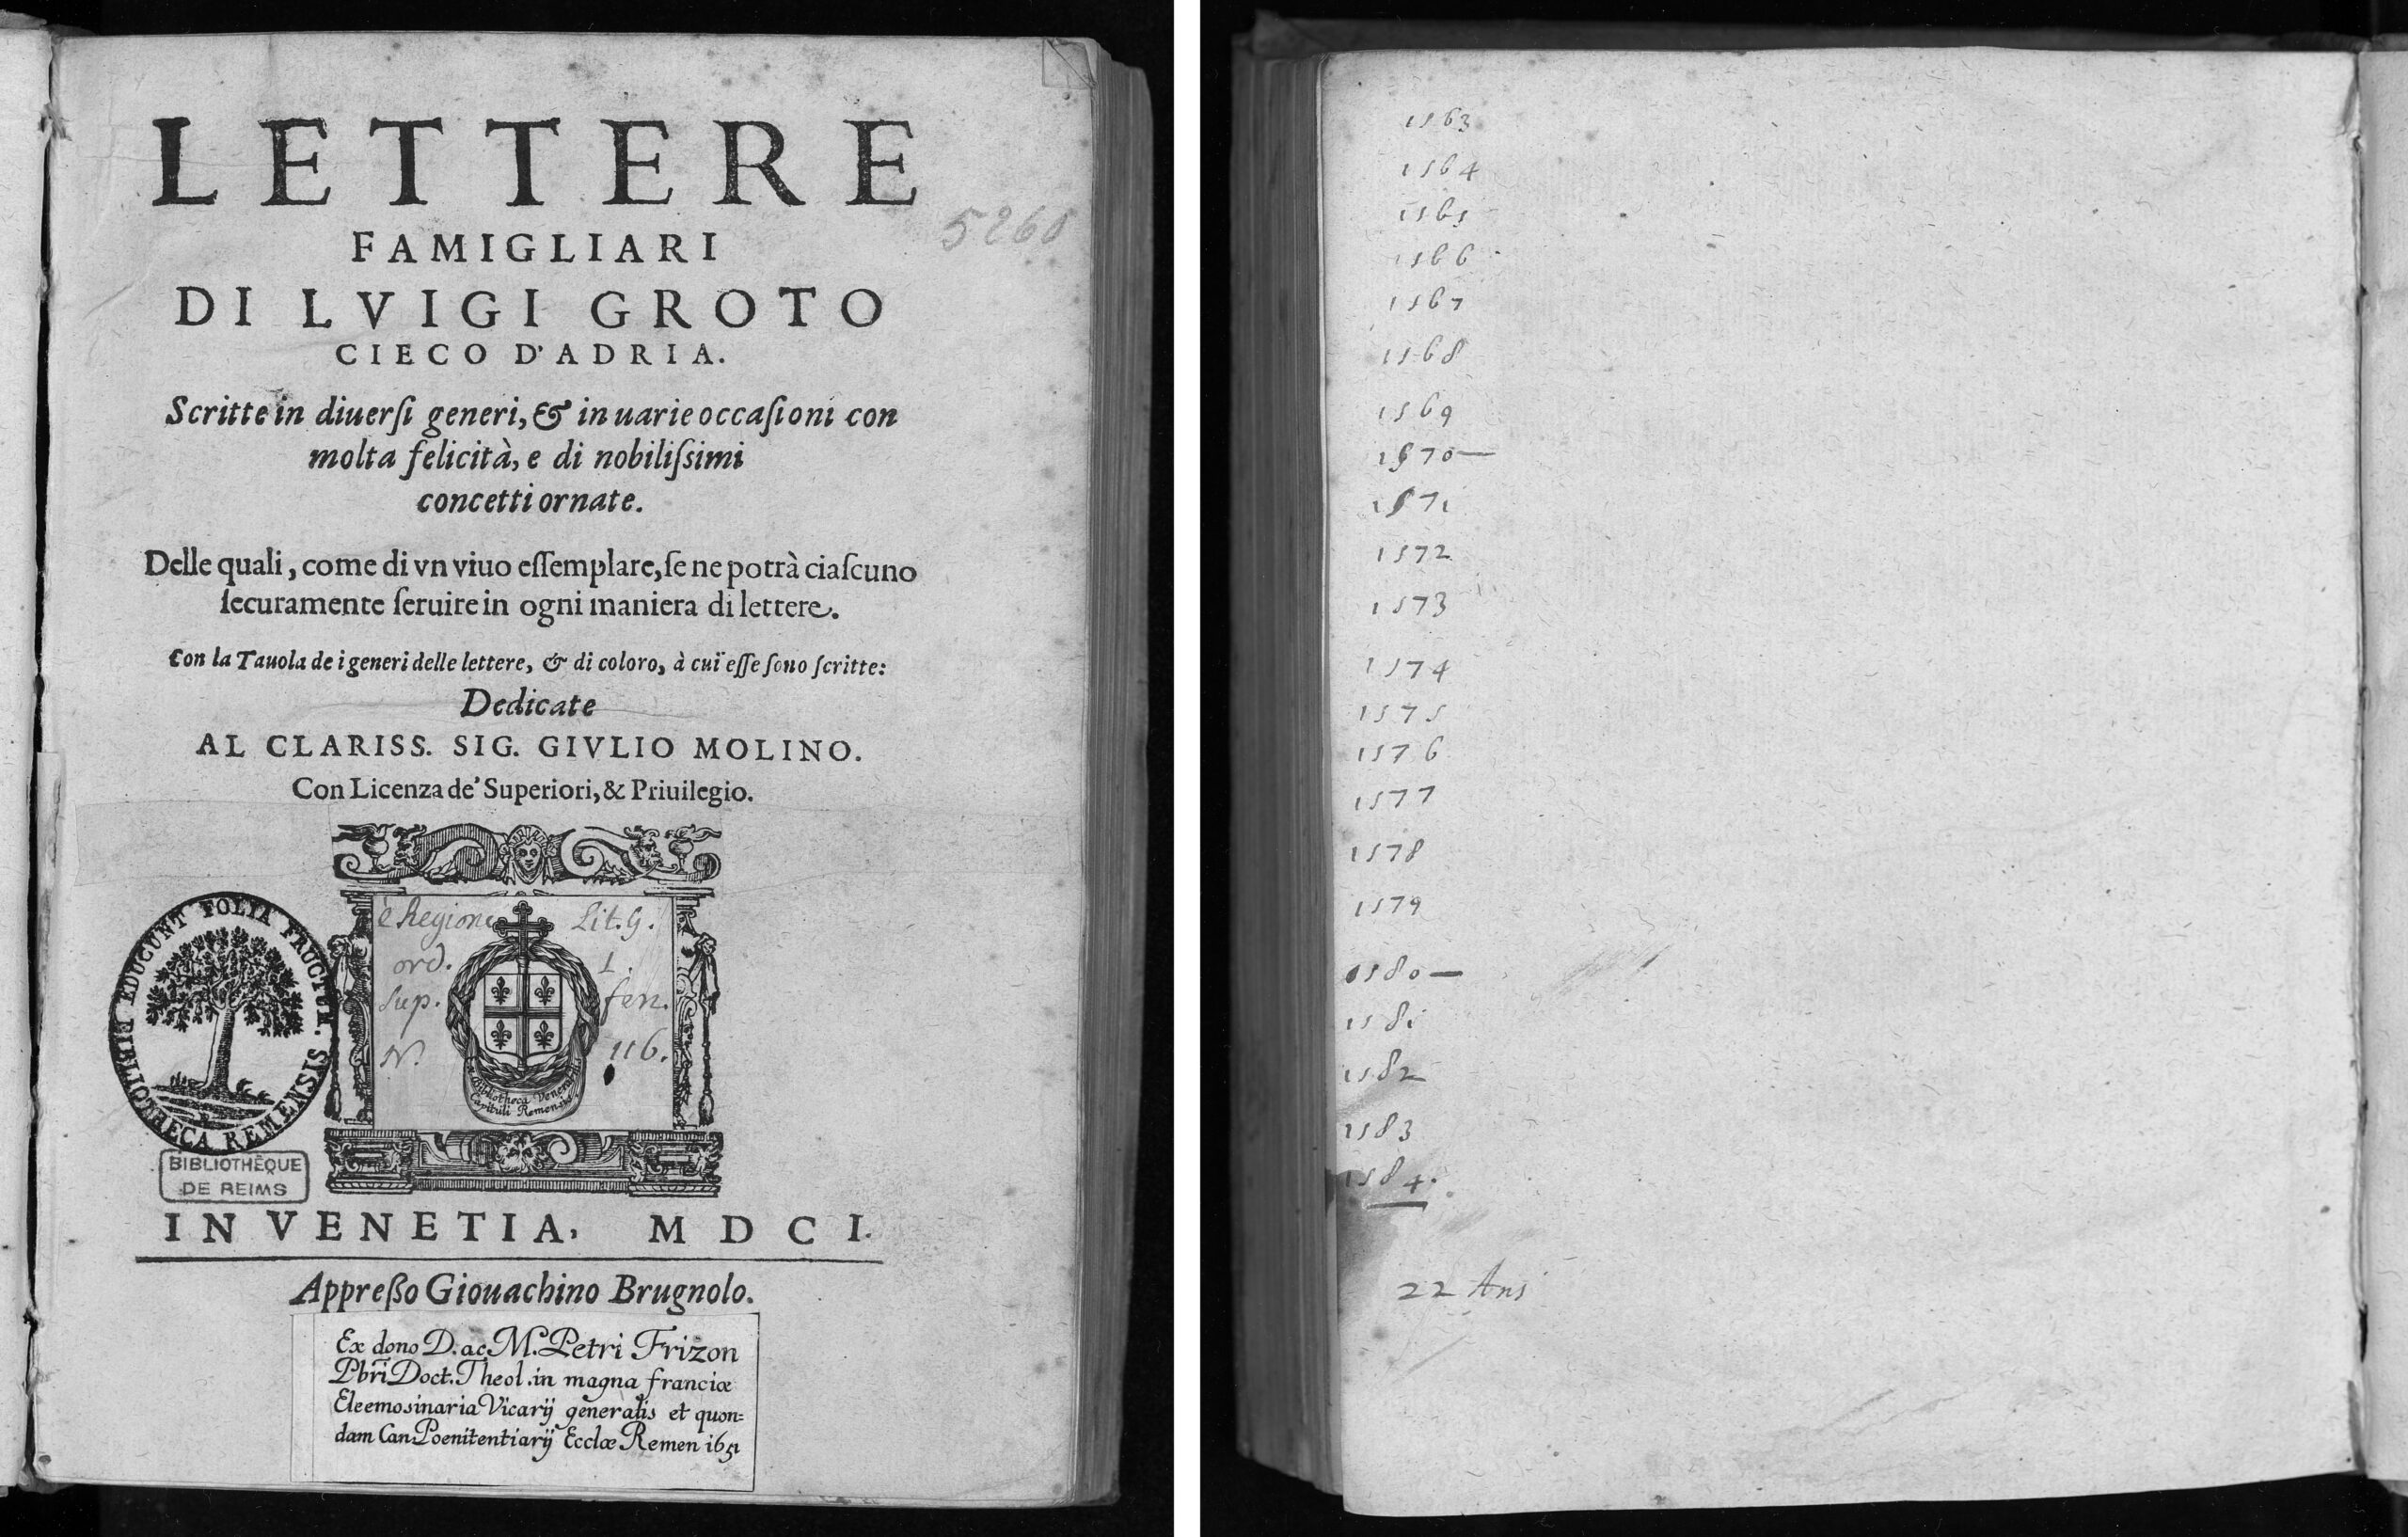 LETTERE
FAMIGLIARI
5260
DI LVIGI GROTO
CIECO D'ADRIA.
Scritte in diuerſi generi, & in uarie occaſioni con
molta felicità, e di nobiliſsimi
concetti ornate.
Delle quali, come di vn viuo eſſemplare, ſe ne potrà ciaſcuno
ſecuramente ſeruire in ogni maniera di lettere.
Con la Tauola de i generi delle lettere, & di coloro, à cui eſſe ſono ſcritte:
Dedicate
AL CLARISS. SIG. GIVLIO MOLINO.
Con Licenza de' Superiori, & Priuilegio.
EDUCUNT FOLIA FRUCTUM. SIC
BIBLIOTHECA REMENSIS
è Regione Lit. G.
ord. 1.
sup. fen.
N. 116.
Bibliotheca Venerab.
Capituli Remensis
BIBLIOTHÈQUE
DE REIMS
IN VENETIA, MDCI.
Appreſſo Giouachino Brugnolo.
Ex dono D. ac M. Petri Frizon
Pbri Doct. Theol. in magna franciæ
Eleemosinaria Vicarij generalis et quon=
dam Can. Poenitentiarij Ecclæ Remen 1651
1563
1564
1565
1566
1567
1568
1569
1570—
1571
1572
1573
1574
1575
1576
1577
1578
1579
1580—
1581
1582
1583
1584.
22 Ans